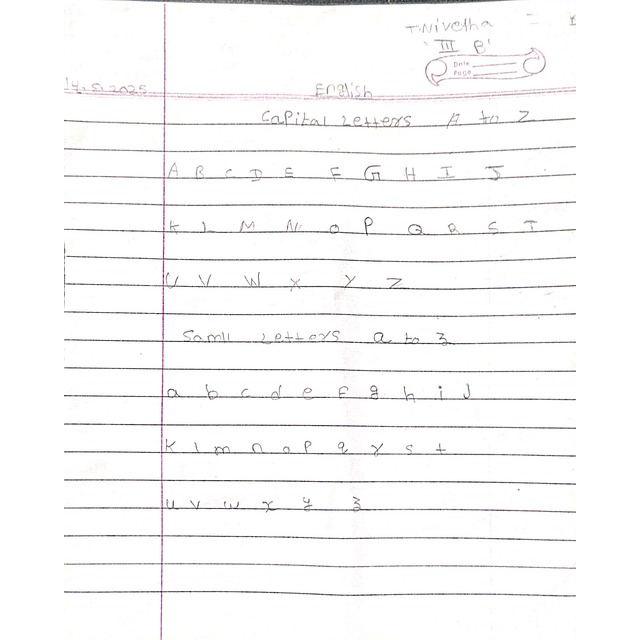 T.Nivetha
III B'
Date
Page
14.5.2025
English
Capital Letters A to Z
A B C D E F G H I J
K L M N O P Q R S T
U V W X Y Z
Somll Letters a to z
a b c d e f g h i J
K l m n o p q r s t
u v w x y z